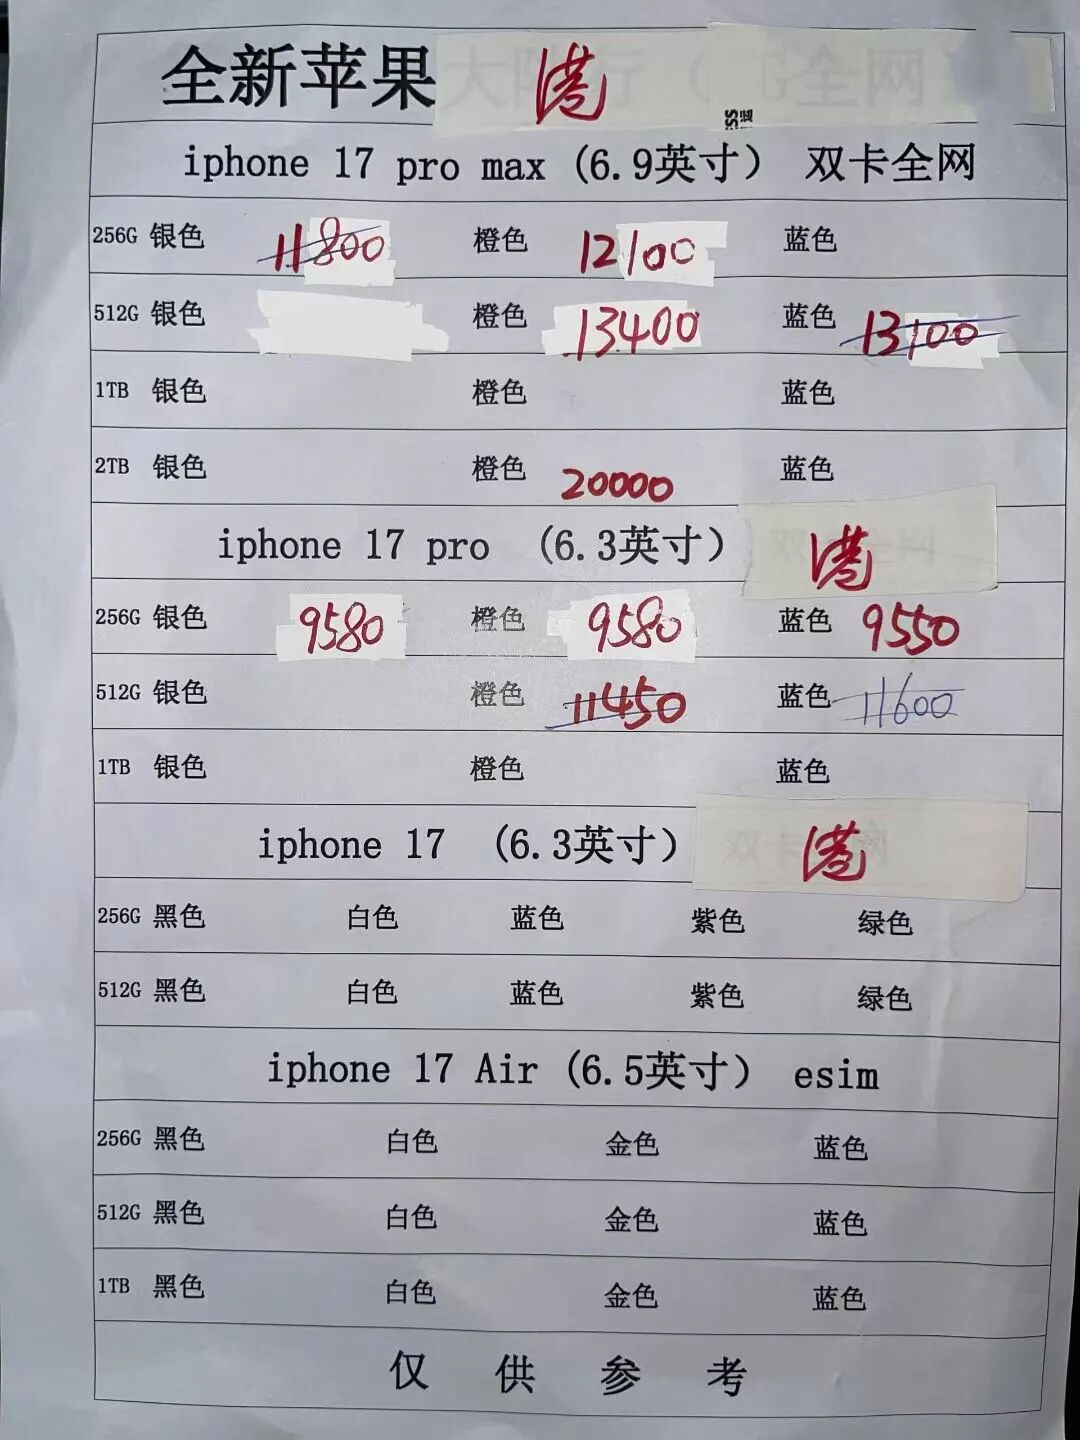 全新苹果 港
iphone 17 pro max (6.9英寸) 双卡全网
256G 银色 11800 橙色 12100 蓝色
512G 银色 橙色 13400 蓝色 13100
1TB 银色 橙色 蓝色
2TB 银色 橙色 20000 蓝色
iphone 17 pro (6.3英寸) 港
256G 银色 9580 橙色 9580 蓝色 9550
512G 银色 橙色 11450 蓝色 11600
1TB 银色 橙色 蓝色
iphone 17 (6.3英寸) 港
256G 黑色 白色 蓝色 紫色 绿色
512G 黑色 白色 蓝色 紫色 绿色
iphone 17 Air (6.5英寸) esim
256G 黑色 白色 金色 蓝色
512G 黑色 白色 金色 蓝色
1TB 黑色 白色 金色 蓝色
仅供参考